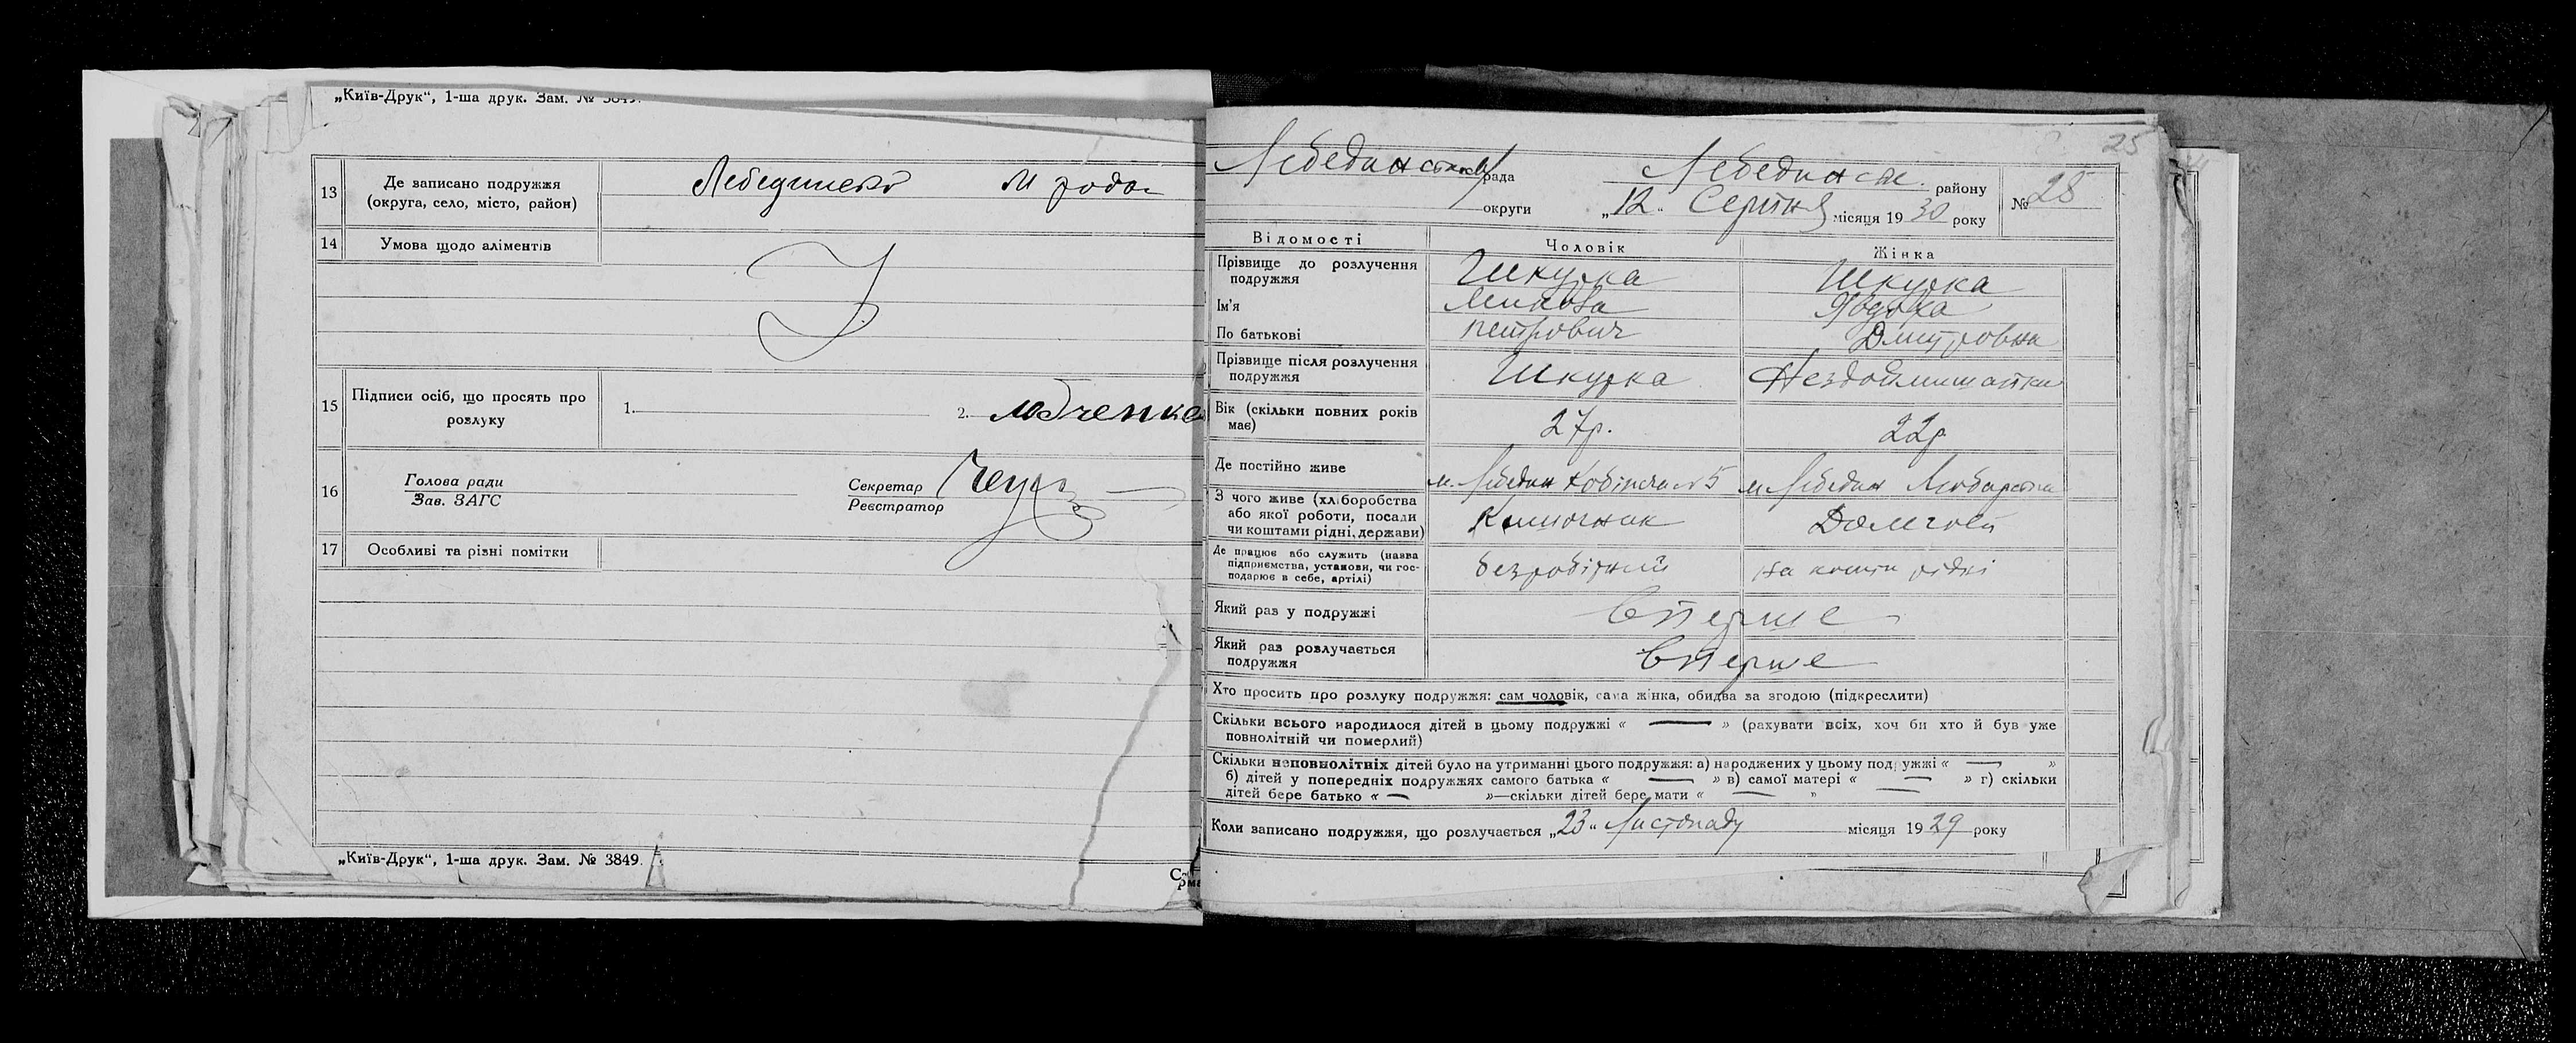 „Київ-Друк“, 1-ша друк. Зам. № 3849.
13 Де записано подружжя (округа, село, місто, район) Лебединсько М рода
14 Умова щодо аліментів
15 Підписи осіб, що просять про розлуку 1. 2.
16 Голова ради
Зав. ЗАГС
Секретар
Реєстратор
17 Особливі та різні помітки
„Київ-Друк“, 1-ша друк. Зам. № 3849.
25
рада Лебединськ. району № 25
округи „12“ Серпня місяця 1930 року
Відомості Чоловік Жінка
Прізвище до розлучення подружжя Шкурка Шкурка
Ім'я
По батькові петрович Дмитровна
Прізвище після розлучення подружжя Шкурка
Вік (скільки повних років має) 27р. 22р
Де постійно живе м. Лебедин 5 м Лебедин
З чого живе (хліборобства або якої роботи, посади чи коштами рідні, держави)
Де працює або служить (назва підприємства, установи, чи господарює в себе, артілі) безробітний на кошти рідні
Який раз у подружжі Вперше
Який раз розлучається подружжя Вперше
Хто просить про розлуку подружжя: сам чоловік, сама жінка, обидва за згодою (підкреслити)
Скільки всього народилося дітей в цьому подружжі « — » (рахувати всіх, хоч би хто й був уже
повнолітній чи померлий)
Скільки неповнолітніх дітей було на утриманні цього подружжя: а) народжених у цьому подружжі « — »
б) дітей у попередніх подружжях самого батька « — » в) самої матері « — » г) скільки
дітей бере батько « — »—скільки дітей бере мати « — »
Коли записано подружжя, що розлучається „23“ Листопаду місяця 1929 року